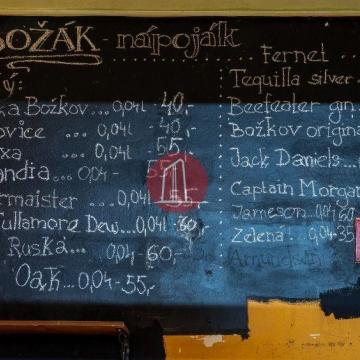 BOŽÁK - naípojálk
ý:
ka Božkov...0,04l - 40,-
ovice ... 0,04l - 40,-
xa ... 0,04l 55,-
andia ... 0,04 - 55,-
ermaister ... 0,04l 55,-
Tullamore Dew...0,04l-60,-
Ruska...0,04-60,-
Oak...0,04-55,-
Fernet
Tequilla silver
Beefeater gin
Božkov origina
Jack Daniels...
Captain Morga
Jameson...0,04l60
Zelená..0,04-35
Amundsen